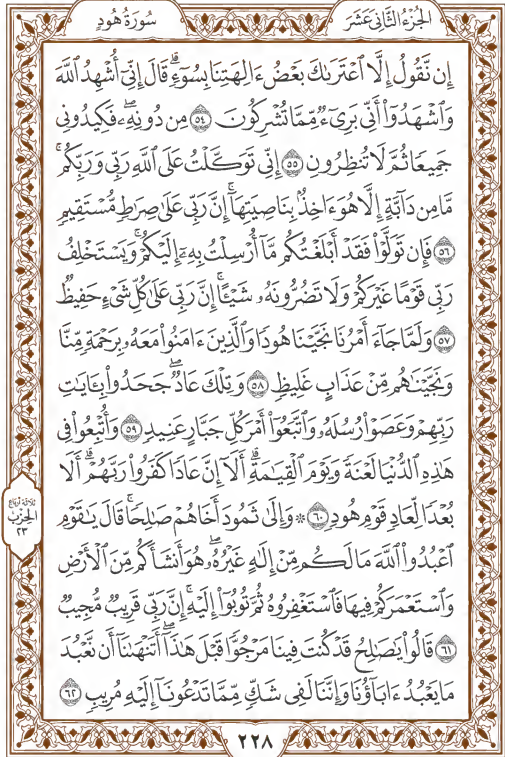 الجُزْءُ الثَّانِي عَشَرَ
سُورَةُ هُودٍ
إِن نَّقُولُ إِلَّا ٱعْتَرَىٰكَ بَعْضُ ءَالِهَتِنَا بِسُوٓءٍۗ قَالَ إِنِّيٓ أُشْهِدُ ٱللَّهَ
وَٱشْهَدُوٓا۟ أَنِّى بَرِىٓءٌ مِّمَّا تُشْرِكُونَ ٥٤ مِن دُونِهِۦۖ فَكِيدُونِى
جَمِيعًا ثُمَّ لَا تُنظِرُونِ ٥٥ إِنِّى تَوَكَّلْتُ عَلَى ٱللَّهِ رَبِّى وَرَبِّكُمۚ
مَّا مِن دَآبَّةٍ إِلَّا هُوَ ءَاخِذٌۢ بِنَاصِيَتِهَآۚ إِنَّ رَبِّى عَلَىٰ صِرَٰطٍ مُّسْتَقِيمٍ
٥٦ فَإِن تَوَلَّوْا۟ فَقَدْ أَبْلَغْتُكُم مَّآ أُرْسِلْتُ بِهِۦٓ إِلَيْكُمْۚ وَيَسْتَخْلِفُ
رَبِّى قَوْمًا غَيْرَكُمْ وَلَا تَضُرُّونَهُۥ شَيْـًٔاۚ إِنَّ رَبِّى عَلَىٰ كُلِّ شَىْءٍ حَفِيظٌ
٥٧ وَلَمَّا جَآءَ أَمْرُنَا نَجَّيْنَا هُودًا وَٱلَّذِينَ ءَامَنُوا۟ مَعَهُۥ بِرَحْمَةٍ مِّنَّا
وَنَجَّيْنَٰهُم مِّنْ عَذَابٍ غَلِيظٍ ٥٨ وَتِلْكَ عَادٌۖ جَحَدُوا۟ بِـَٔايَٰتِ
رَبِّهِمْ وَعَصَوْا۟ رُسُلَهُۥ وَٱتَّبَعُوٓا۟ أَمْرَ كُلِّ جَبَّارٍ عَنِيدٍ ٥٩ وَأُتْبِعُوا۟ فِى
هَٰذِهِ ٱلدُّنْيَا لَعْنَةً وَيَوْمَ ٱلْقِيَٰمَةِۗ أَلَآ إِنَّ عَادًا كَفَرُوا۟ رَبَّهُمْۗ أَلَا
بُعْدًا لِّعَادٍ قَوْمِ هُودٍ ٦٠ ۞ وَإِلَىٰ ثَمُودَ أَخَاهُمْ صَٰلِحًاۚ قَالَ يَٰقَوْمِ
ٱعْبُدُوا۟ ٱللَّهَ مَا لَكُم مِّنْ إِلَٰهٍ غَيْرُهُۥۖ هُوَ أَنشَأَكُم مِّنَ ٱلْأَرْضِ
وَٱسْتَعْمَرَكُمْ فِيهَا فَٱسْتَغْفِرُوهُ ثُمَّ تُوبُوٓا۟ إِلَيْهِۚ إِنَّ رَبِّى قَرِيبٌ مُّجِيبٌ
٦١ قَالُوا۟ يَٰصَٰلِحُ قَدْ كُنتَ فِينَا مَرْجُوًّا قَبْلَ هَٰذَآۖ أَتَنْهَىٰنَآ أَن نَّعْبُدَ
مَا يَعْبُدُ ءَابَآؤُنَا وَإِنَّنَا لَفِى شَكٍّ مِّمَّا تَدْعُونَآ إِلَيْهِ مُرِيبٍ ٦٢
ثلاثة أرباع
الحزب
٢٣
٢٢٨